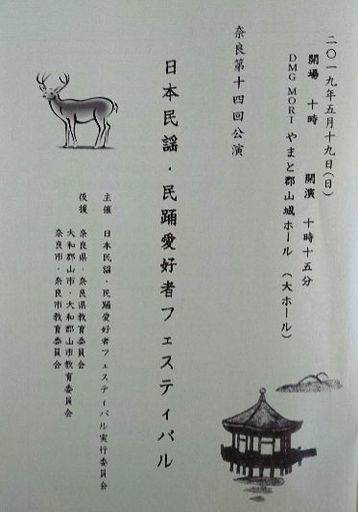 二〇一九年五月十九日(日)
開場 十時 開演 十時十五分
DMG MORI やまと郡山城ホール (大ホール)
奈良第十四回公演
日本民謡・民踊愛好者フェスティバル
主催 日本民謡・民踊愛好者フェスティバル実行委員会
後援 奈良県・奈良県教育委員会
大和郡山市・大和郡山市教育委員会
奈良市・奈良市教育委員会